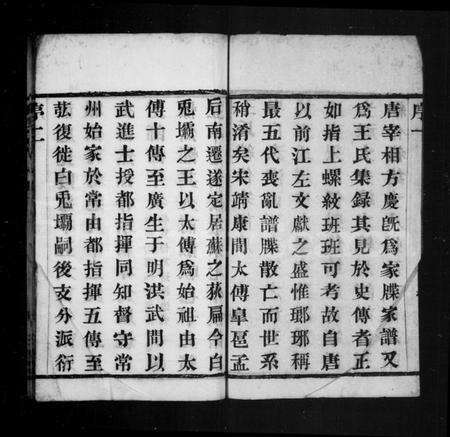 序一
唐宰相方慶旣爲家牒家譜又
爲王氏集録其見於史傳者正
如指上螺紋班班可考故自唐
以前江左文獻之盛惟瑯琊稱
最五代喪亂譜牒散亡而世系
稍淆矣宋靖康間太傅臯邑孟
后南遷遂定居蘇之荻扁今白
兎壩之王以太傅爲始祖由太
傅十傳至廣生于明洪武間以
武進士授都指揮同知督守常
州始家於常由都指揮五傳至
莊復徙白兎壩嗣後支分派衍
序二